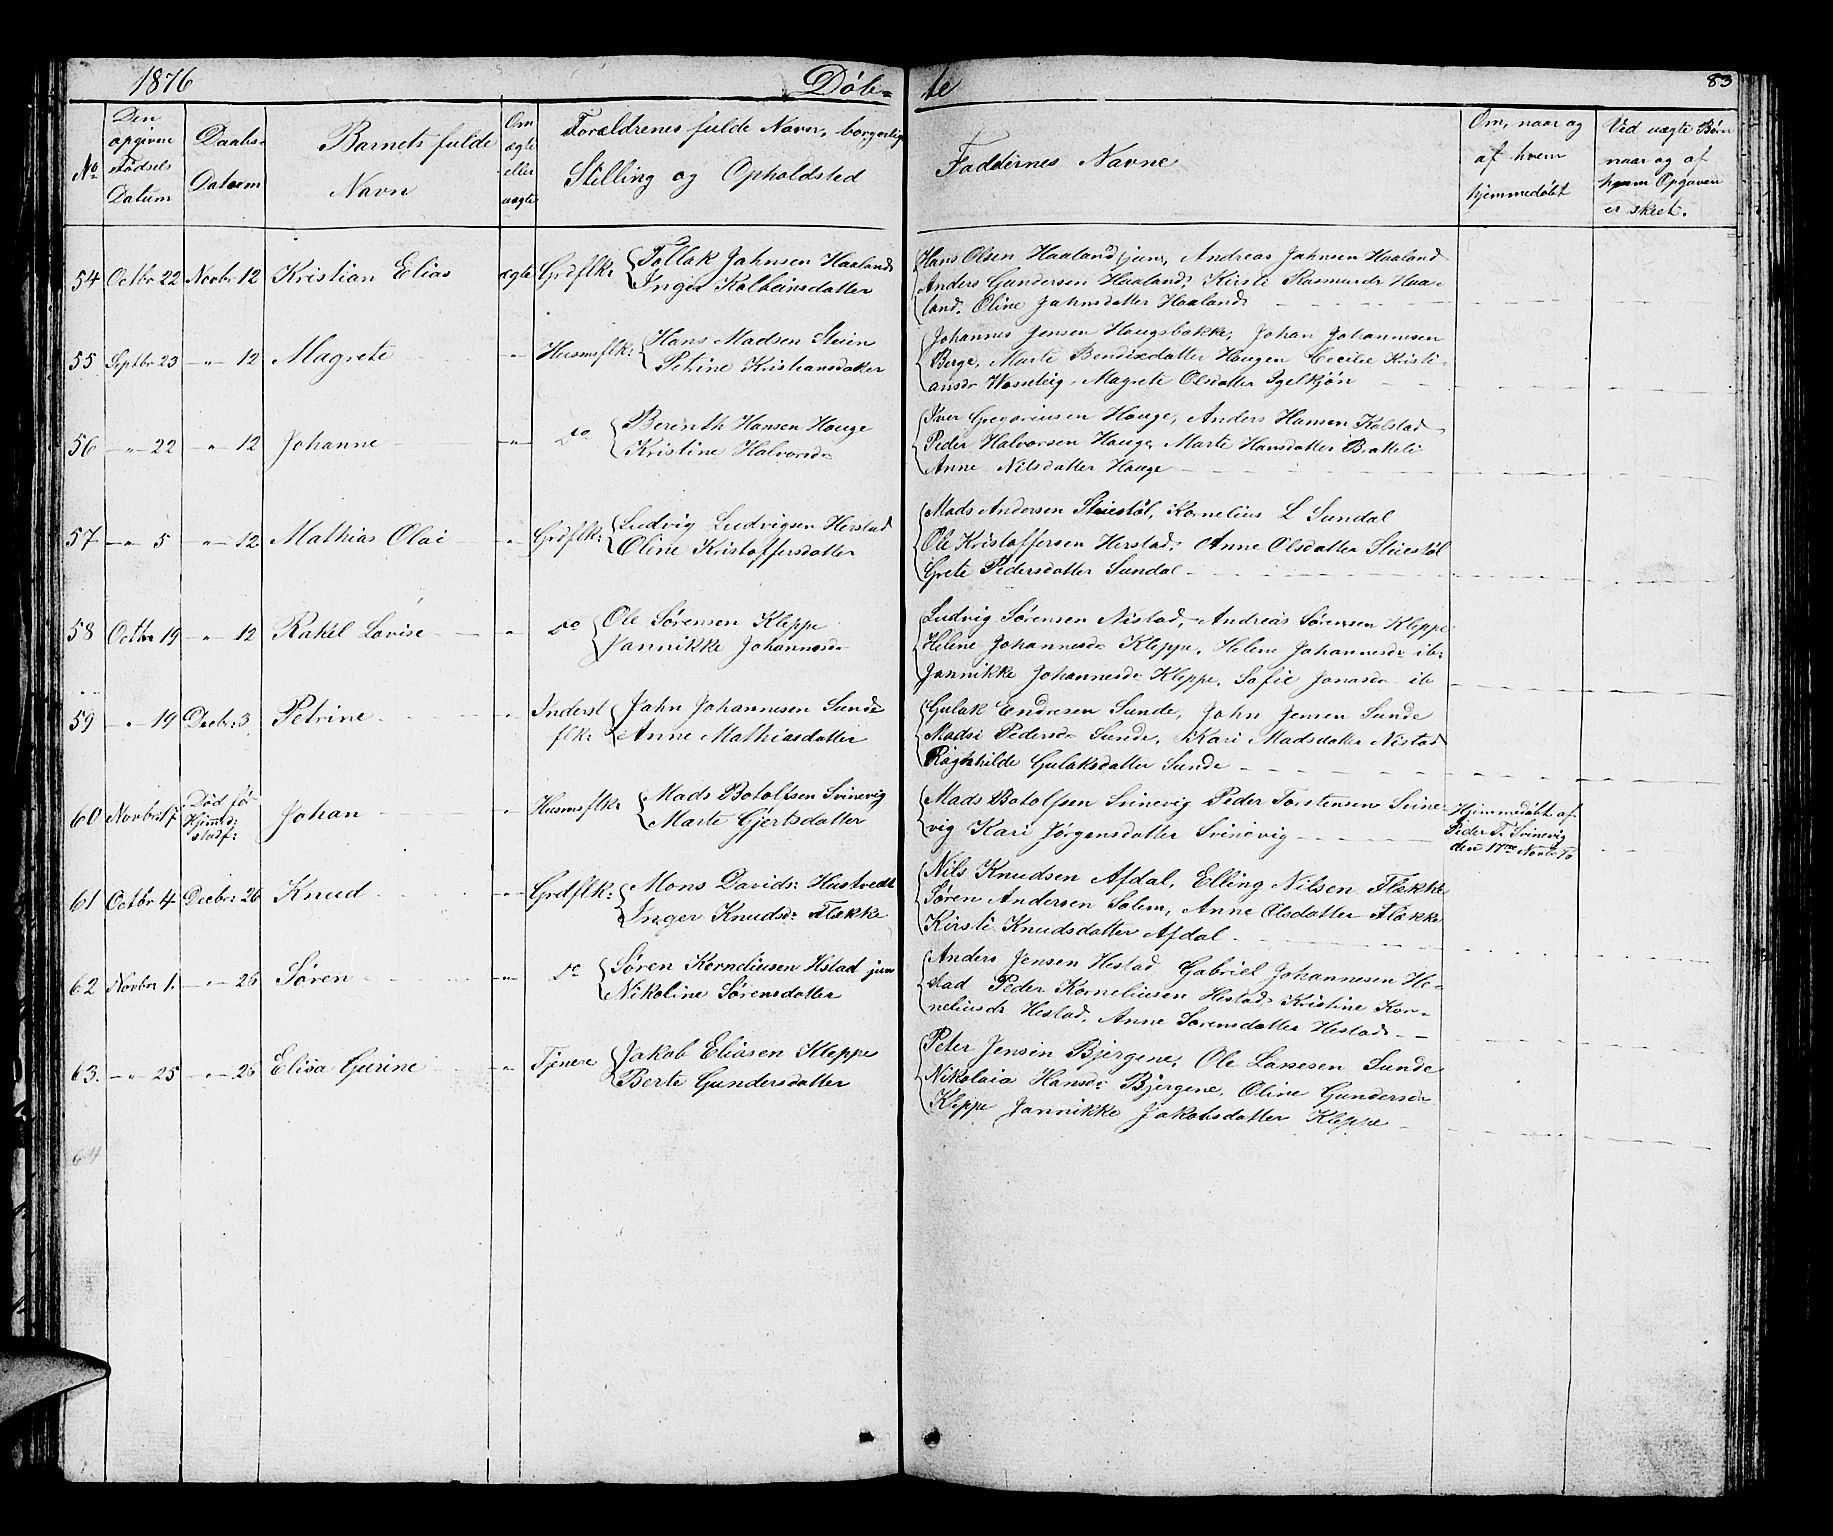 1876 Døb= te 83
No Den opgivne Fødsels Datum Daabs- Datum Barnets fulde Navn Om ægte eller uægte Forældrenes fulde Navn, borgerlig Stilling og Opholdsted Faddernes Navne Om, naar og af hvem hjemmedøbt Ved uægte Børn naar og af hvem Opgaven er skeet.
54 Octbr 22 Novbr 12 Kristian Elias ægte Grdflk: Tollak Johnsen Haaland
Inger Kolbeinsdatter
Hans Olsen Haaland jun, Andreas Johnsen Haaland
Anders Gundersen Haaland, Kirsti Rasmusdr Haa-
land. Oline Johnsdatter Haaland
55 Septbr 23 -"- 12 Magrete " Husmsflk: Hans Madsen Steien
Petrine Kristiansdatter
Johannes Jensen Haugsbakke, Johan Johannesen
Berge, Marte Bendixdatter Haugen Cecilie Kristi-
ansdr Magrete Olsdatter Igelkjøn
56 -"- 22 -"- 12 Johanne -"- Do Berenth Hansen Hauge
Kristine Halvorsdr
Iver Gregoriusen Hauge, Anders Hansen Kalstad
Peder Halvorsen Hauge, Marte Hansdatter Brakteli
Anne Nilsdatter Hauge
57 -"- 5 -"- 12 Mathias Olai " Grdflk: Ludvig Ludvigsen Herstad
Oline Kristoffersdatter
Mads Andersen Steiestøl, Kornelius L Sundal
Ole Kristoffersen Herstad, Anne Olsdatter Steiestøl
Grete Pedersdatter Sundal
58 Octbr 19 -"- 12 Rakel Lovise " Do Ole Sørensen Kleppe
Jannikke Johannesdr
Ludvig Sørensen Nistad, Andreas Sørensen Kleppe
Helene Johannesdr Kleppe, Helene Johannesdr ib:
Jannikke Johannesdr Kleppe, Sofie Jonasdr ib
59 -"- 19 Decbr 3 Petrine " Inderst
flk: John Johannesen Sunde
Anne Mathiasdatter
Gulak Endresen Sunde, John Jensen Sunde
Madsi Pedersdr Sunde, Kari Madsdatter Nistad
Raghnilde Gulaksdatter Sunde
60 Novbr 17 Død før
Hjemd:
stadf: Johan " Husmsflk: Mads Botolfsen Svinevig
Marte Gjertsdatter
Mads Botolfsen Svinevig Peder Torstensen Svine-
vig Kari Jørgensdatter Svinevig
Hjemmedøbt af
Peder T. Svinevig
den 17de Novbr
61 Octbr 4 Decbr 26 Knud -"- Grdflk: Mons Davids: Hustvedt
Inger Knudsdr Flekke
Nils Knudsen Afdal, Elling Nilsen Flekke
Søren Andersen Salem, Anne Olsdatter Flekke
Kirsti Knudsdatter Afdal
62 Novbr 1. -"- 26 Søren -"- Do Søren Korneliusen Hstad jun
Nikoline Sørensdatter
Anders Jensen Hestad Gabriel Johannesen He-
stad Peder Korneliusen Hestad Kristine Kor-
neliusdr Hestad, Anne Sørensdatter Hestad
63. -"- 25 -"- 26 Elisa Gurine " Tjenere Jakob Eliasen Kleppe
Berte Gundersdatter
Peter Jensen Bjergene, Ole Lassesen Sunde
Nikolaia Hansdr Bjergene, Oline Gundersdr
Kleppe Jannikke Jakobsdatter Kleppe
64